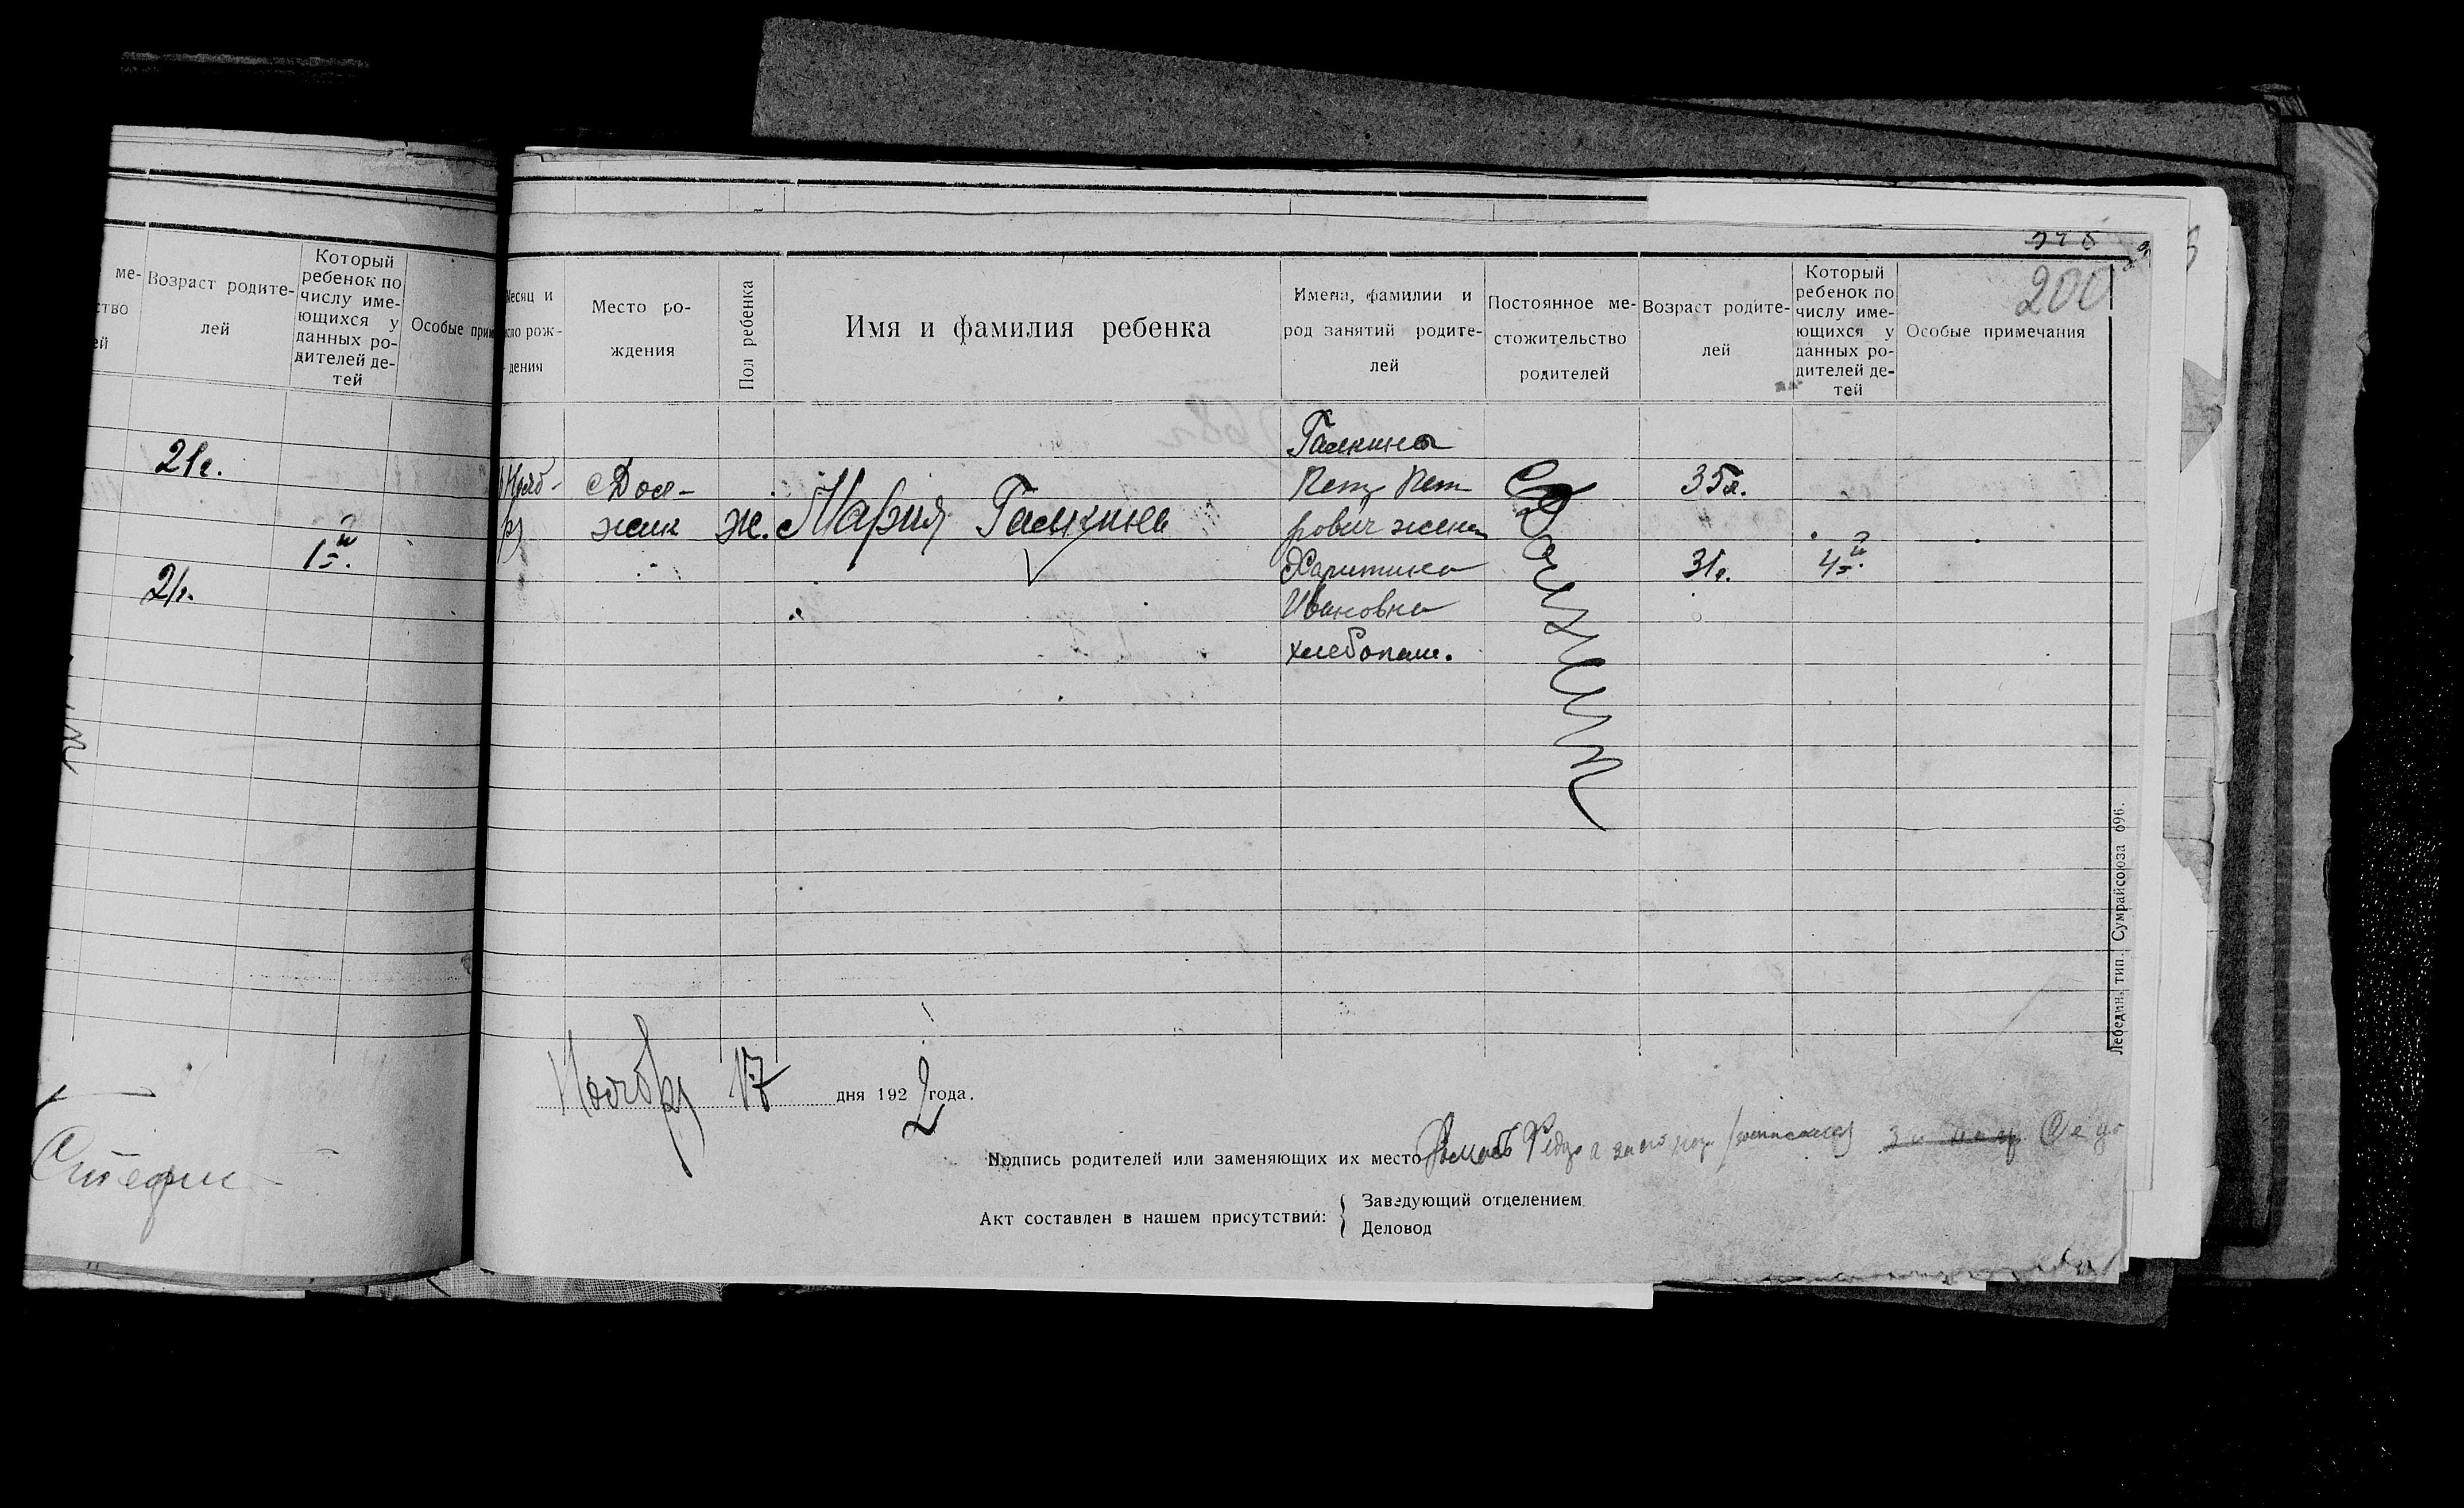 ме-
ство
ей
Возраст родите-
лей
Который
ребенок по
числу име-
ющихся у
данных ро-
дителей де-
тей
Особые прим
21г.
1й.
21г.
Стефан
200
Месяц и
число рож-
дения
Место ро-
ждения
Пол ребенка
Имя и фамилия ребенка
Имена, фамилии и
род занятий родите-
лей
Постоянное ме-
стожительство
родителей
Возраст родите-
лей
Который
ребенок по
числу име-
ющихся у
данных ро-
дителей де-
тей
Особые примечания
Нояб-
ря
с Дол-
жик
ж.
Мария Галкина
Галкины
Петр Пет
рович жена
Харитина
Ивановна
хлебопаш.
с Должик
35л.
31г.
4й.
Ноября 17 дня 1922 года.
Подпись родителей или заменяющих их место
Акт составлен в нашем присутствий:
Заведующий отделением
Деловод
Лебедин. тип. Сумрайсоюза 696.